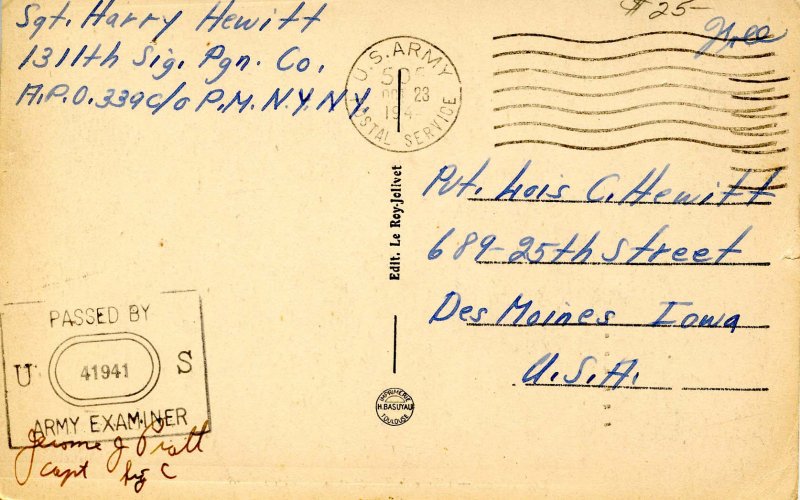 Sgt. Harry Hewitt
1311th Sig. Pgn. Co.
A.P.O. 339 c/o P.M. N.Y. N.Y.
$25-
Free
U.S. ARMY
OCT 23
194
POSTAL SERVICE
Pvt. Lois C. Hewitt
689-25th Street
Des Moines Iowa
U.S.A.
Edit. Le Roy-Jolivet
IMPRIMERIE
H. BASUYAU
TOULOUSE
PASSED BY
U 41941 S
ARMY EXAMINER
Jerome J Pratt
Capt Sig C